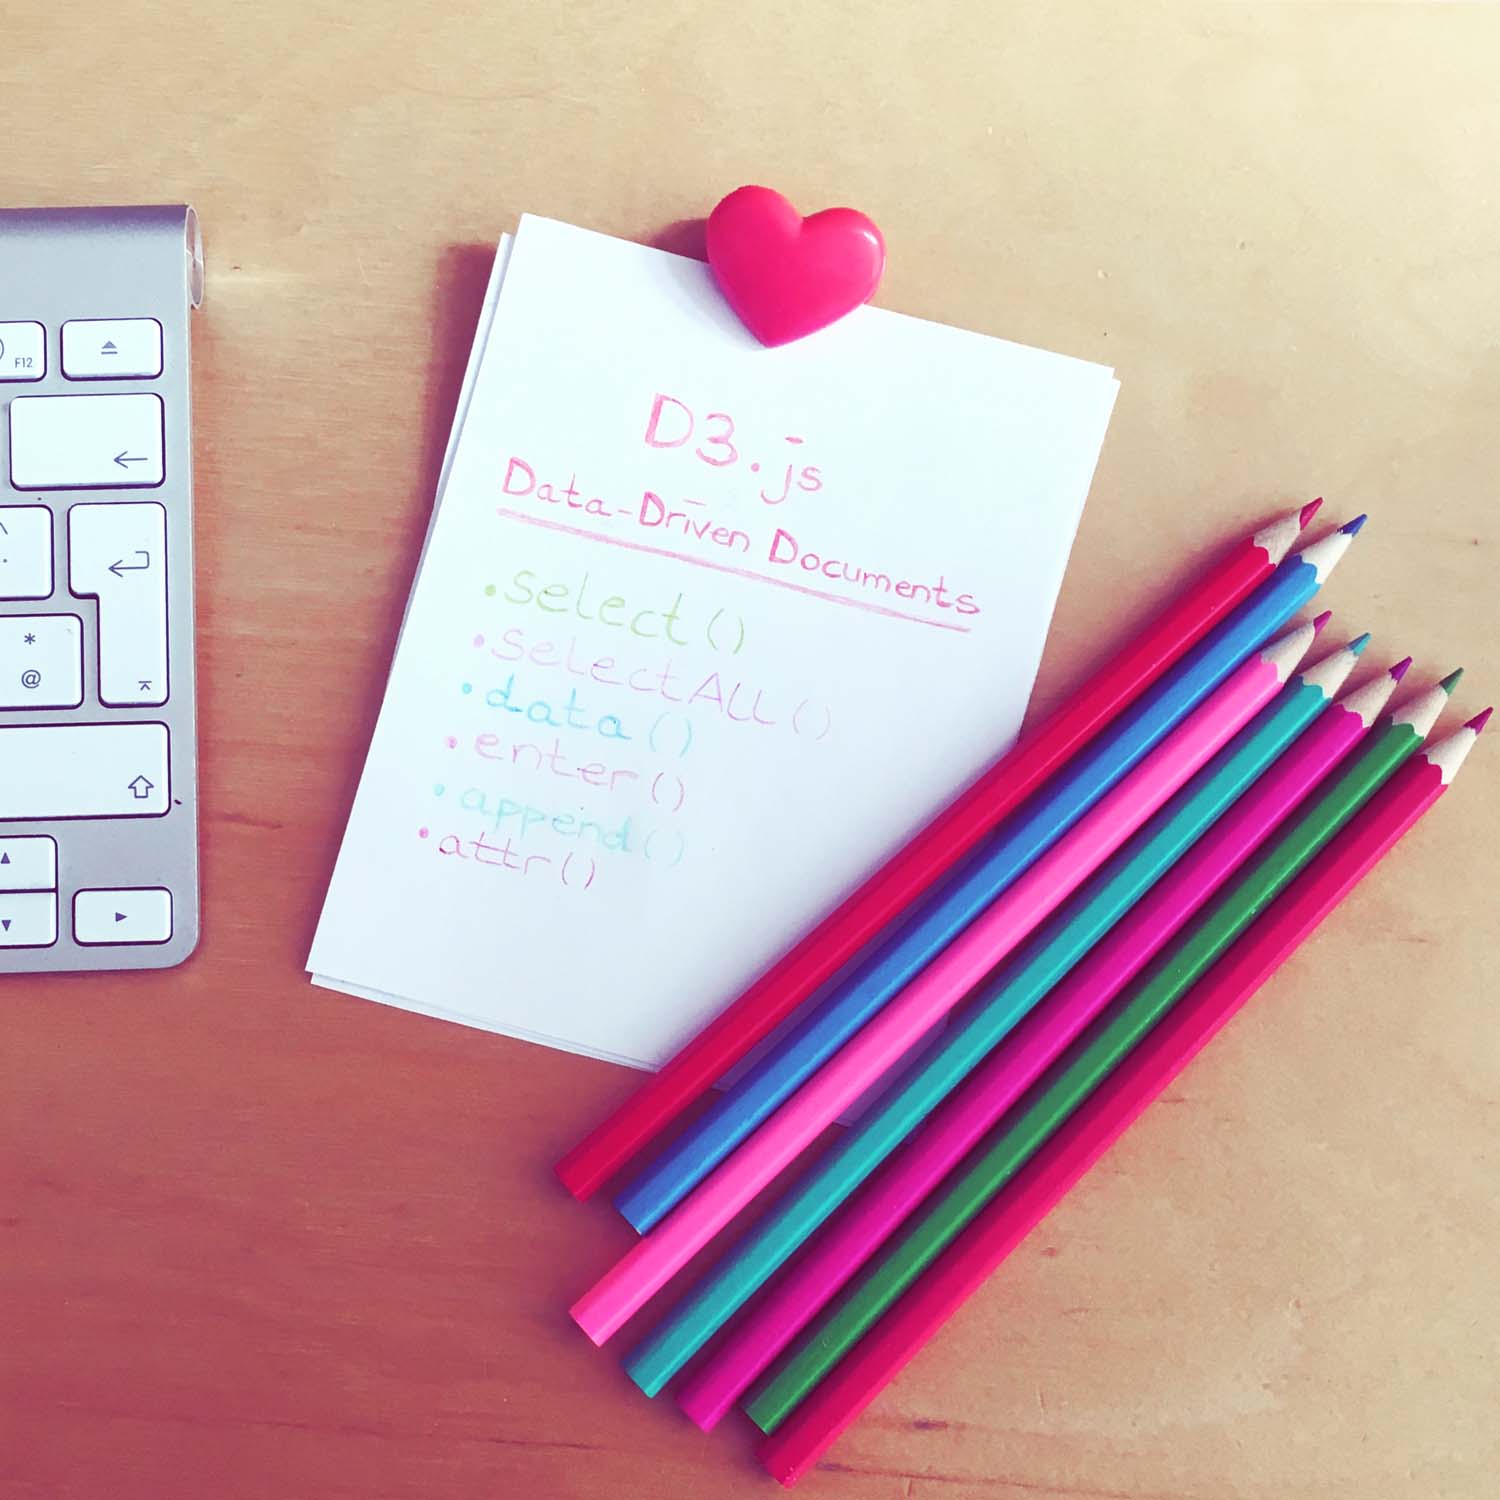 F12
*
@
D3.js
Data-Driven Documents
.select()
.selectALL()
.data()
.enter()
.append()
.attr()